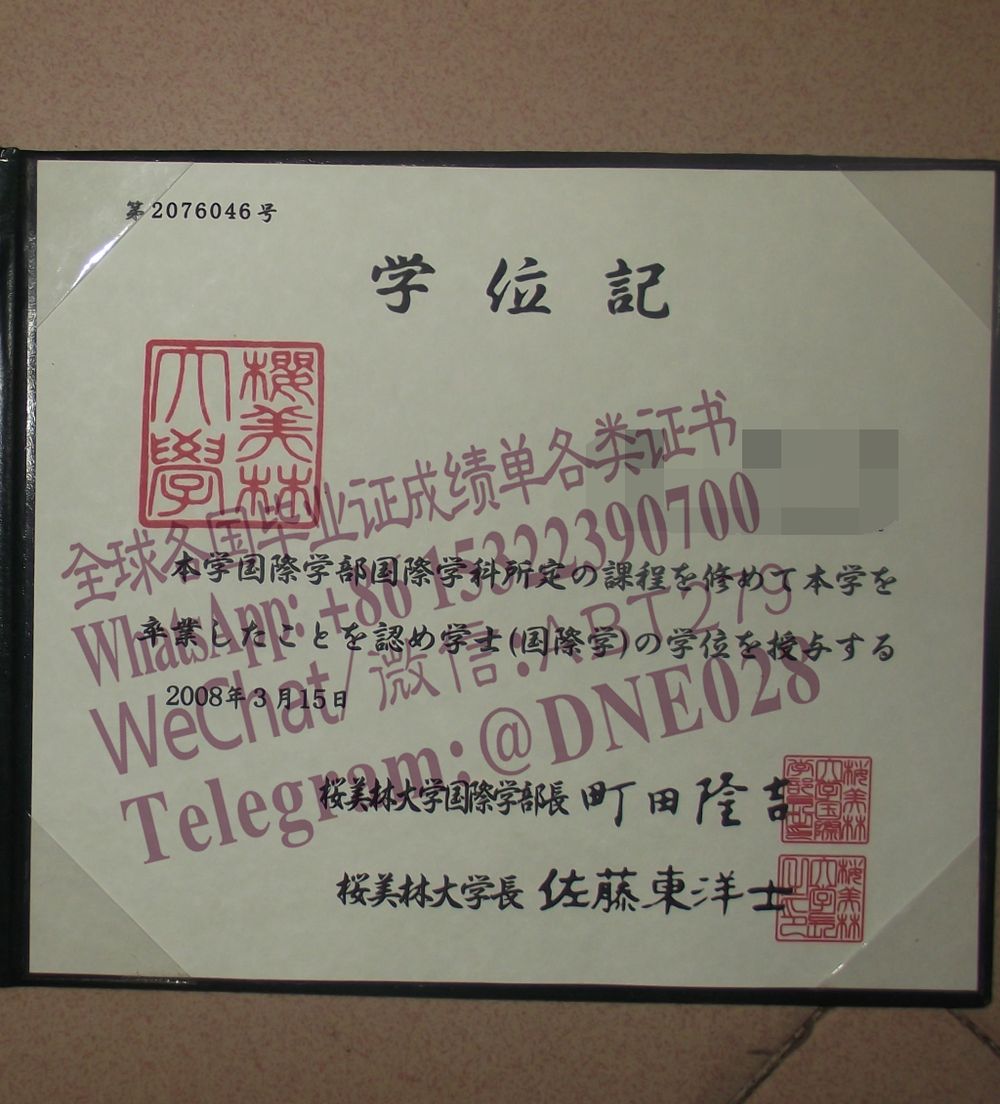 第2076046号
学位記
櫻美林
大學
全球各国毕业证成绩单各类证书
WhatsApp: +86 15322390700
本学国際学部国際学科所定の課程を修めて本学を
卒業したことを認め学士(国際学)の学位を授与する
WeChat/微信:ART279
2008年3月15日
Telegram:@DNE028
桜美林大学国際学部長 町田隆吉
桜美林大学長 佐藤東洋士